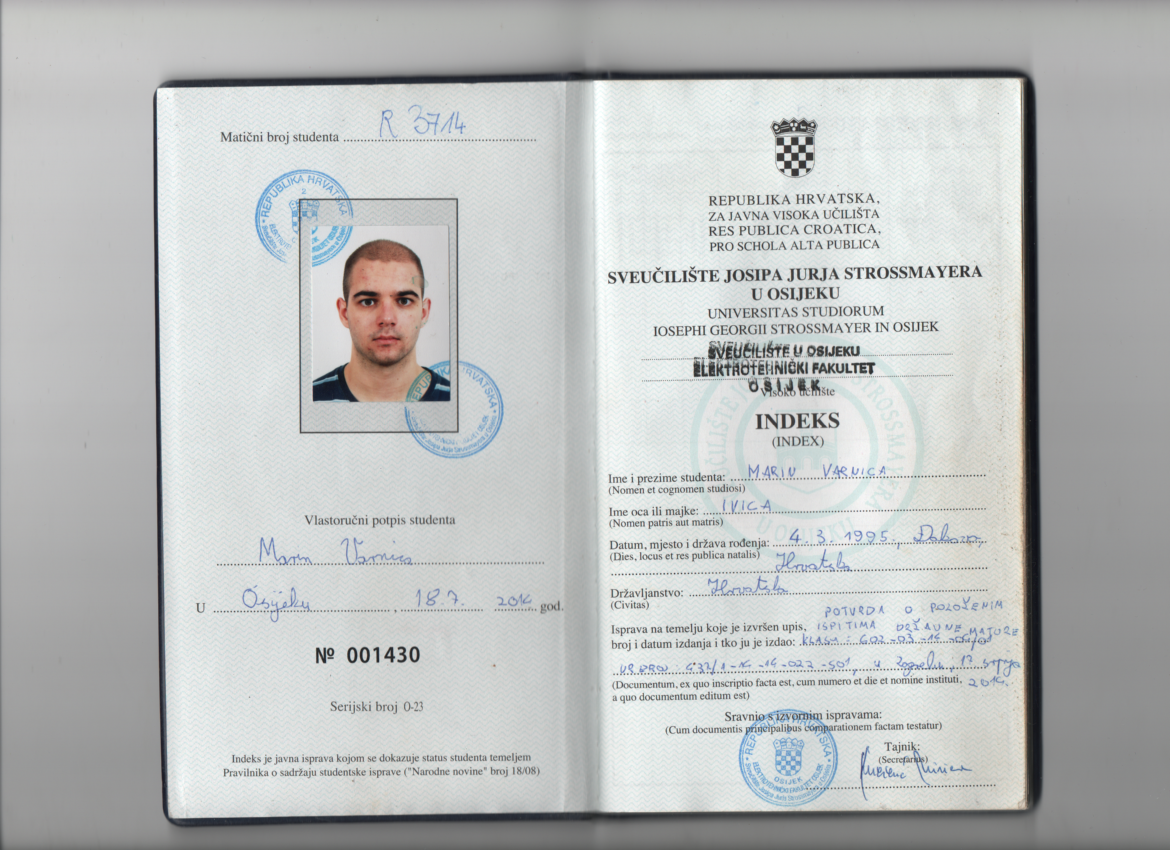 Matični broj studenta R 3714
REPUBLIKA HRVATSKA
2
REPUBLIKA HRVATSKA
Vlastoručni potpis studenta
Marin Varnica
U Osijeku, 18.7. 2014. god.
№ 001430
Serijski broj O-23
Indeks je javna isprava kojom se dokazuje status studenta temeljem
Pravilnika o sadržaju studentske isprave ("Narodne novine" broj 18/08)
REPUBLIKA HRVATSKA,
ZA JAVNA VISOKA UČILIŠTA
RES PUBLICA CROATICA,
PRO SCHOLA ALTA PUBLICA
SVEUČILIŠTE JOSIPA JURJA STROSSMAYERA
U OSIJEKU
UNIVERSITAS STUDIORUM
IOSEPHI GEORGII STROSSMAYER IN OSIJEK
SVEUČILIŠTE U OSIJEKU
ELEKTROTEHNIČKI FAKULTET
OSIJEK
Visoko učilište
INDEKS
(INDEX)
Ime i prezime studenta: MARIN VARNICA
(Nomen et cognomen studiosi)
Ime oca ili majke: IVICA
(Nomen patris aut matris)
Datum, mjesto i država rođenja: 4. 3. 1995., Đakovo,
(Dies, locus et res publica natalis) Hrvatska
Državljanstvo: Hrvatska
(Civitas)
POTVRDA O POLOŽENIM
Isprava na temelju koje je izvršen upis, ISPITIMA DRŽAVNE MATURE
broj i datum izdanja i tko ju je izdao: KLASA: 602-03-14-
u Zagrebu, 17. srpnja
(Documentum, ex quo inscriptio facta est, cum numero et die et nomine instituti, 2014.
a quo documentum editum est)
Sravnio s izvornim ispravama:
(Cum documentis principalibus comparationem factam testatur)
Tajnik:
(Secretarius)
REPUBLIKA HRVATSKA
OSIJEK